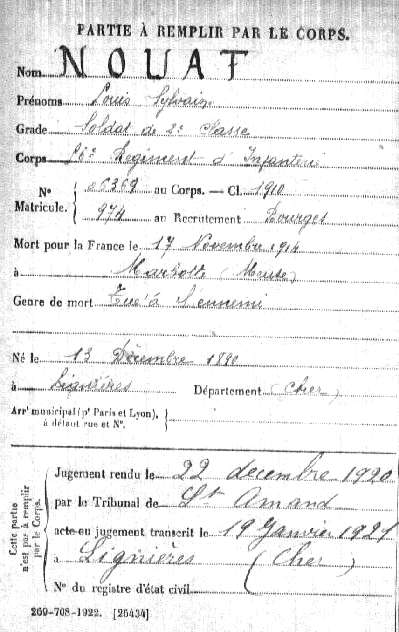 PARTIE À REMPLIR PAR LE CORPS.
Nom NOUAT
Prénoms Louis Sylvain
Grade Soldat de 2e Classe
Corps Régiment d'Infanterie
Nº Matricule. { au Corps. — Cl. 1910
974 au Recrutement Bourges
Mort pour la France le 17 Novembre 1914
à Marbotte (Meuse)
Genre de mort Tué à l'ennemi
Né le 13 Décembre 1890
à Lignières Département (Cher)
Arrt municipal (pr Paris et Lyon), à défaut rue et Nº.
Cette partie n'est pas à remplir par le Corps.
Jugement rendu le 22 decembre 1920
par le Tribunal de St Amand
acte ou jugement transcrit le 19 Janvier 1921
à Lignières (Cher)
Nº du registre d'état civil
269-708-1922. [26434]